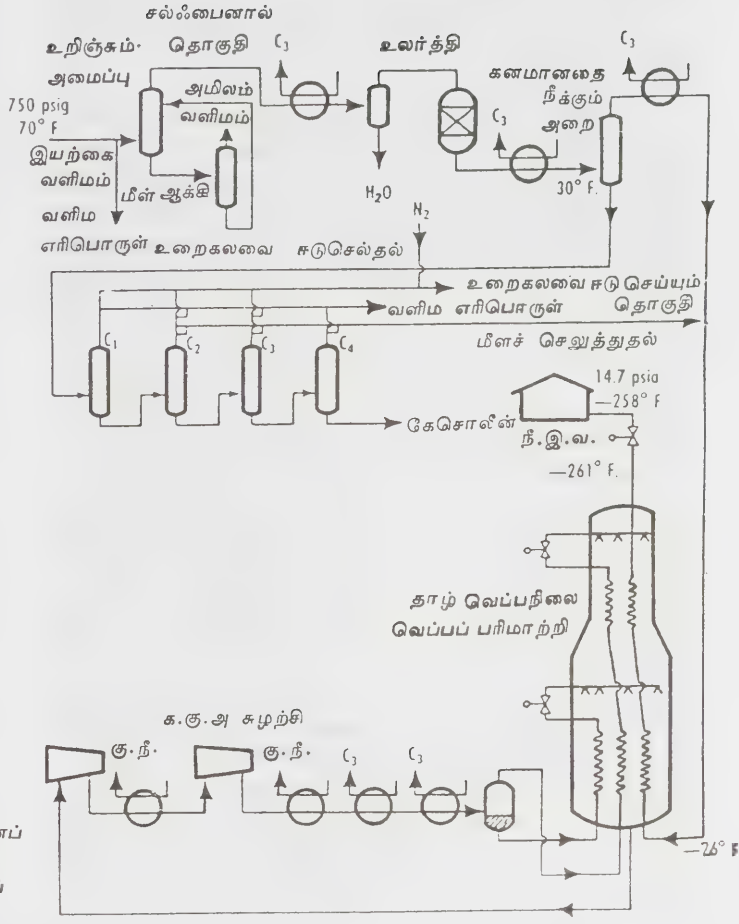 சல்ஃபைனால்
உறிஞ்சும் தொகுதி
அமைப்பு
C₃
உலர்த்தி
C₃
கனமானதை
நீக்கும்
அறை
750 psig
70° F
அமிலம்
வளிமம்
C₃
இயற்கை
வளிமம்
மீள் ஆக்கி
H₂O
30° F.
வளிம
எரிபொருள்
N₂
உறைகலவை ஈடுசெல்தல்
உறைகலவை ஈடு செய்யும்
தொகுதி
வளிம எரிபொருள்
மீளச் செலுத்துதல்
C₁ C₂ C₃ C₄
கேசொலீன்
14.7 psia
—258° F
நீ.இ.வ.
—261° F.
தாழ் வெப்பநிலை
வெப்பப் பரிமாற்றி
க.கு.அ சுழற்சி
கு.நீ. கு.நீ. C₃ C₃
—26° F